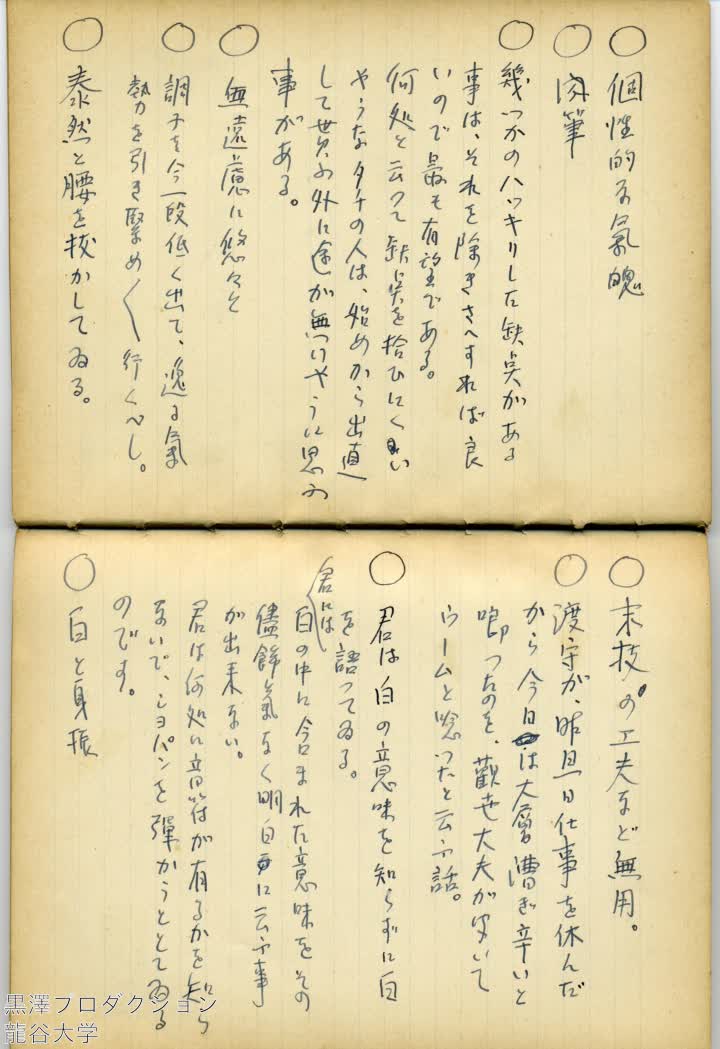 ○ 個性的な氣魄
○ 肉筆
○ 幾つかのハッキリした缺点がある
事は、それを除きさへすれば良
いので最も有望である。
何処と云つて缺点を拾ひにくい
やうなタチの人は、始めから出直
して貰ふ外に途が無いやうに思ふ
事がある。
○ 無遠慮に悠々と
○ 調子を今一段低く出て、逸る氣
勢を引き緊め〳〵行くべし。
○ 泰然と腰を抜かしてゐる。
○ 末技の工夫など無用。
○ 渡守が、昨日一日仕事を休んだ
から今日は大層漕ぎ辛いと
喞つたのを、觀世大夫が聞いて
ウームと唸つたと云ふ話。
○ 君は白の意味を知らずに白
を語つてゐる。
君には
白の中に含まれた意味をその
儘餘氣なく明白に云ふ事
が出来ない。
君は何処に音符が有るかを知ら
ないで、ショパンを彈かうとしてゐる
のです。
○ 白と身振
黒澤プロダクション
龍谷大学